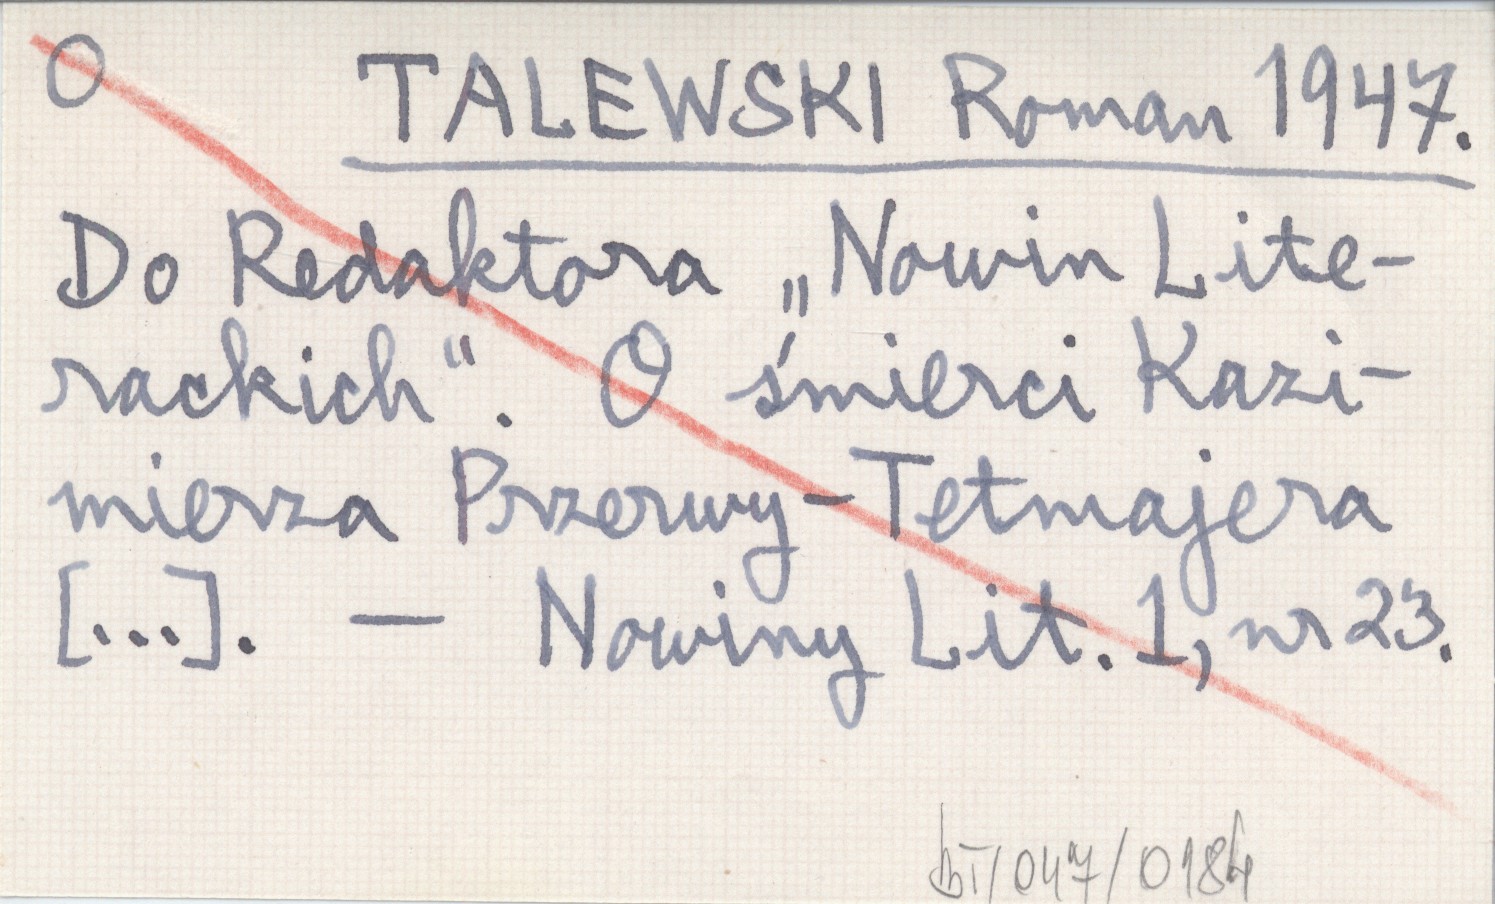 O TALEWSKI Roman 1947.
Do Redaktora „Nowin Lite-
rackich“. O śmierci Kazi-
mierza Przerwy-Tetmajera
[...]. — Nowiny Lit. 1, nr 23.
/047/0184